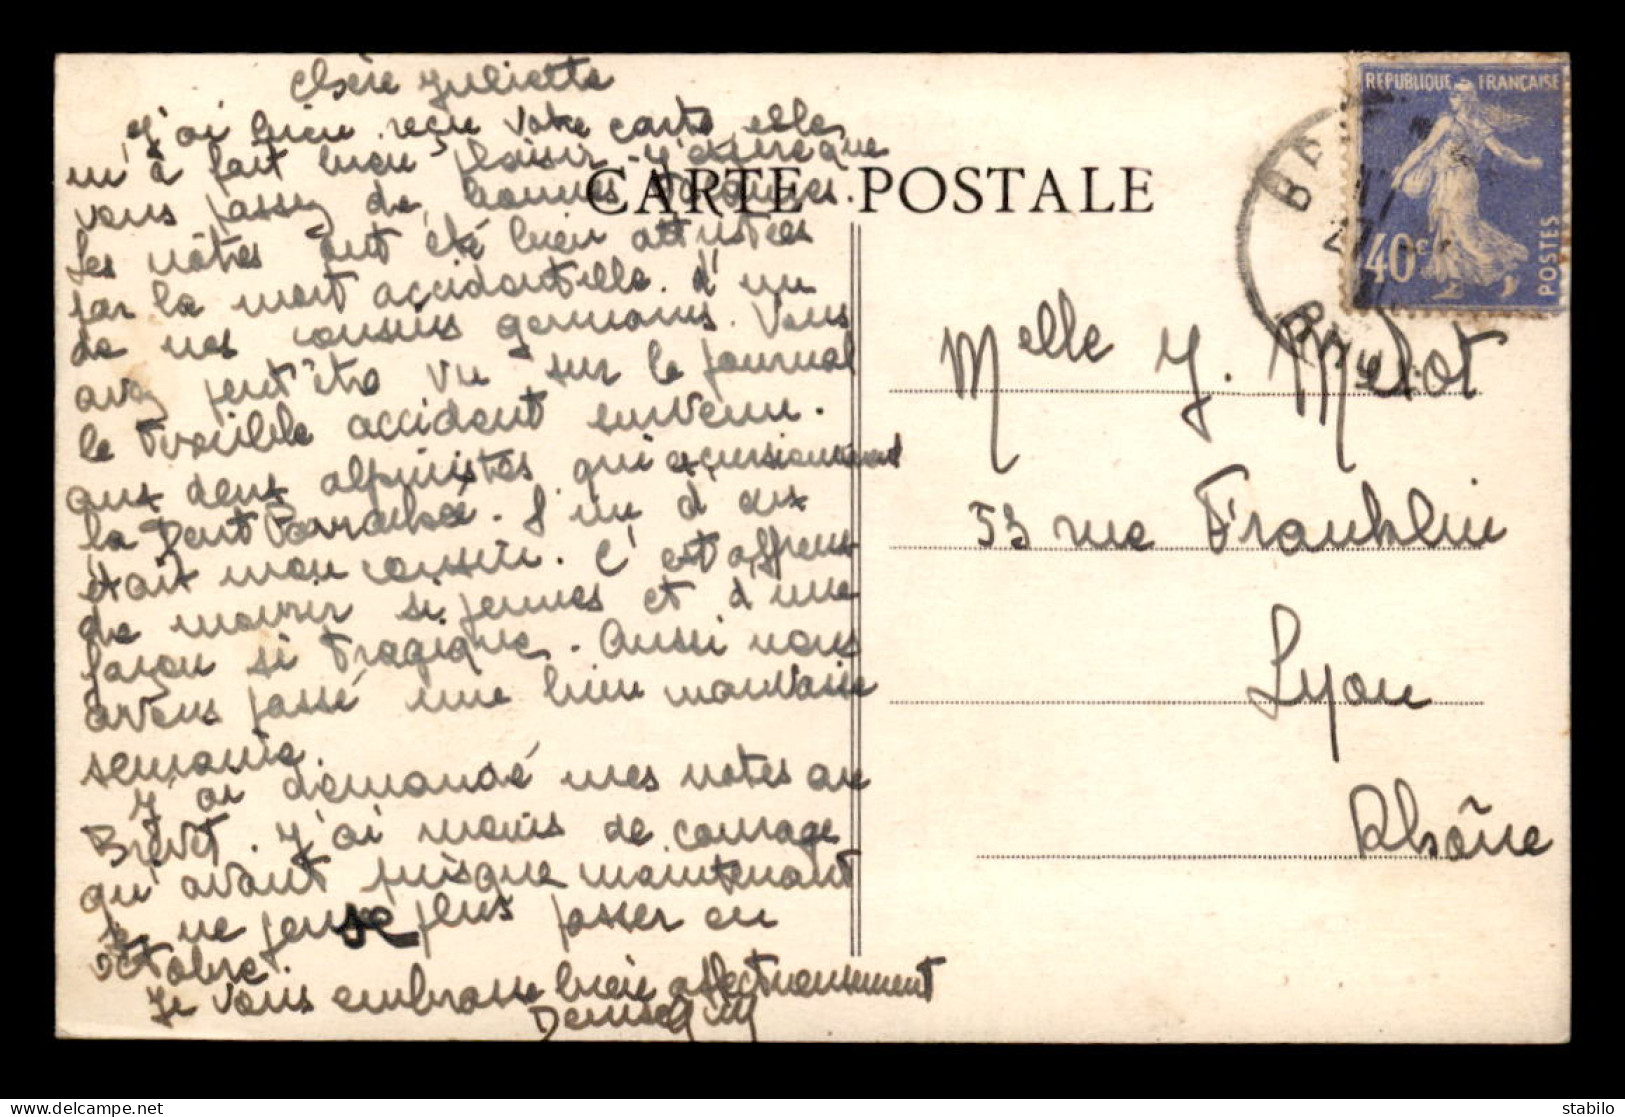 Chère Juliette
J'ai bien reçu votre carte, elle
m'a fait bien plaisir j'espère que
vous passez de bonnes vacances.
Les nôtres ont été bien attristées
par la mort accidentelle d'un
de nos cousins germains. Vous
avez peut'être vu sur le journal
le terrible accident survenu
aux deux alpinistes qui excursionnaient
la Dent Parrachée. L'un d'eux
était mon cousin. C'est affreux
de mourir si jeunes et d'une
façon si tragique. Aussi nous
avons passé une bien mauvaise
semaine.
J'ai demandé mes notes au
Brevet. J'ai moins de courage
qu'avant puisque maintenant
je ne pense plus passer en
octobre.
Je vous embrasse bien affectueusement
Denise
CARTE POSTALE
REPUBLIQUE FRANÇAISE
40c
POSTES
RHÔ
Melle J.
53 rue Franklin
Lyon
Rhône
stabilo_fr